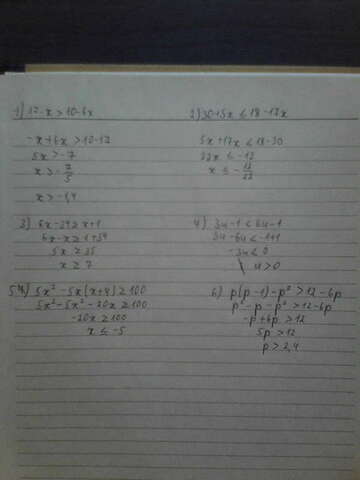 1) 17-x>10-6x
-x+6x>10-17
5x>-7
x>-7/5
x>-1,4
2) 30+5x≤18-17x
5x+17x≤18-30
22x≤-12
x≤-12/22
3) 6x-34≥x+1
6x-x≥1+34
5x≥35
x≥7
4) 3u-1<6u-1
3u-6u<-1+1
-3u<0
u>0
5) 5x²-5x(x+4)≥100
5x²-5x²-20x≥100
-20x≥100
x≤-5
6) p(p-1)-p²>12-6p
p²-p-p²>12-6p
-p+6p>12
5p>12
p>2,4